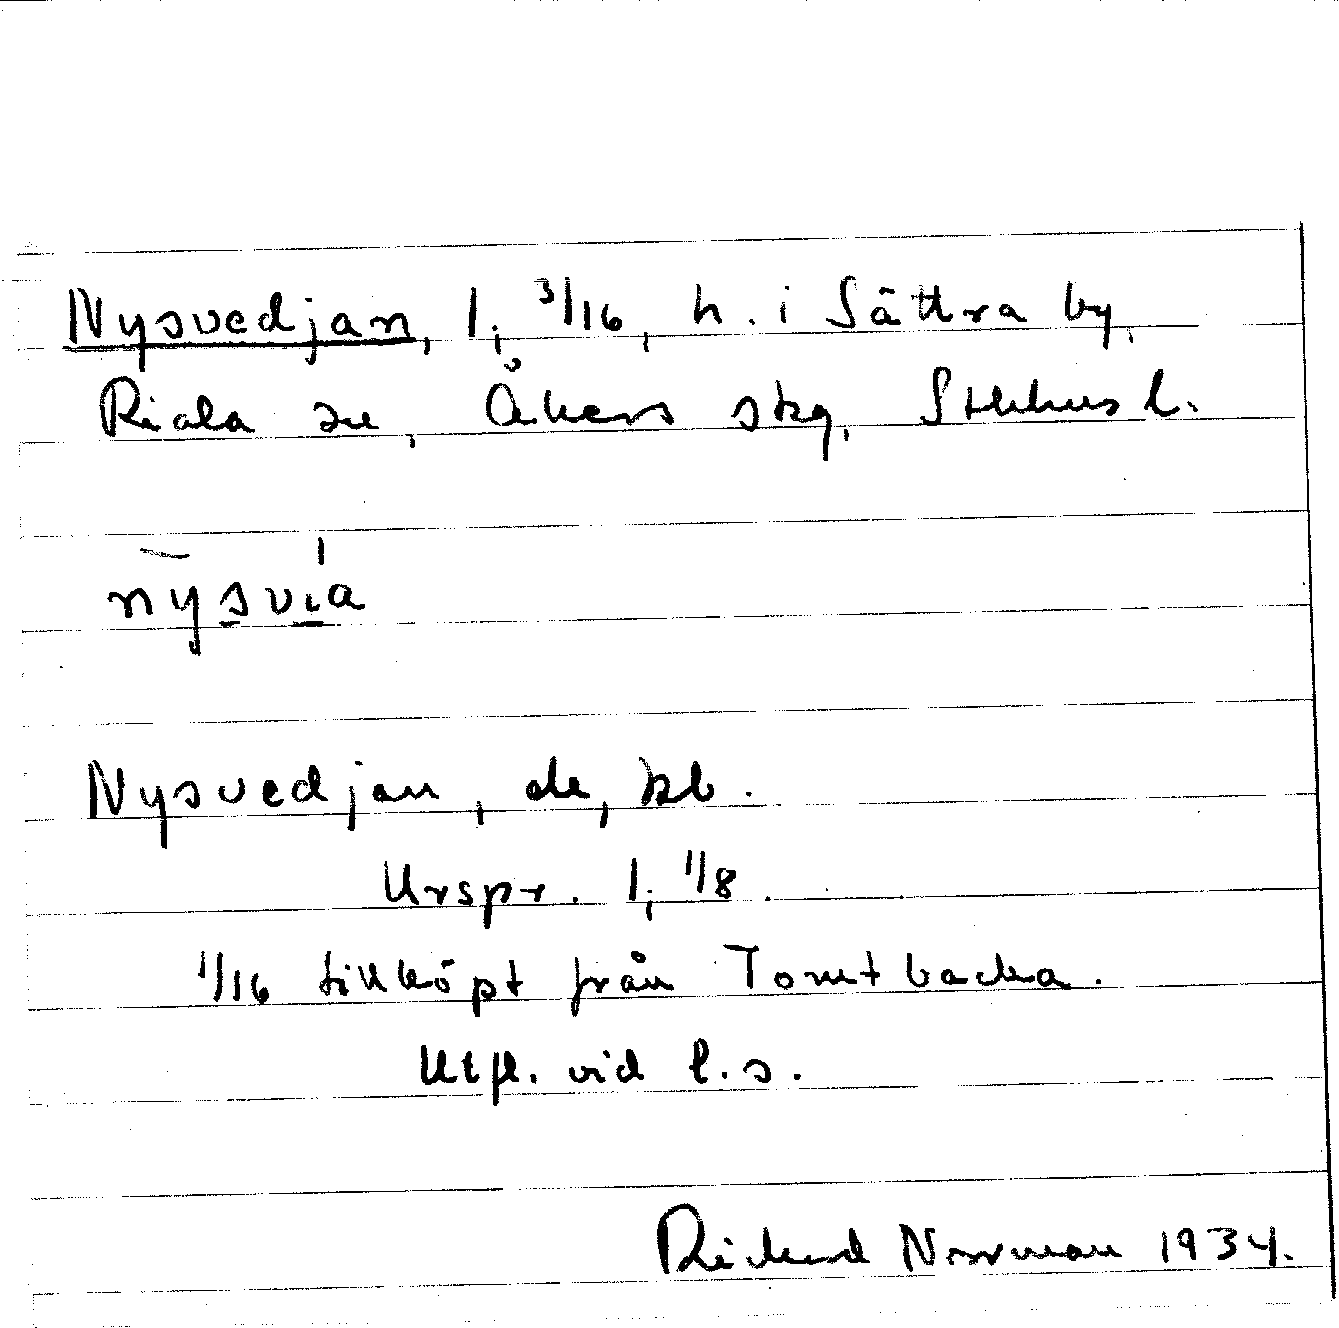 Nysvedjan, 1, 3/16, h. i Sättra by,
Riala sn, Åkers skg, Sthlms l.
nysvia
Nysvedjan, de, kb.
Urspr. 1, 1/8.
1/16 tillköpt från Tomtbacka.
Utfl. vid l.s.
Rickard Norrman 1934.